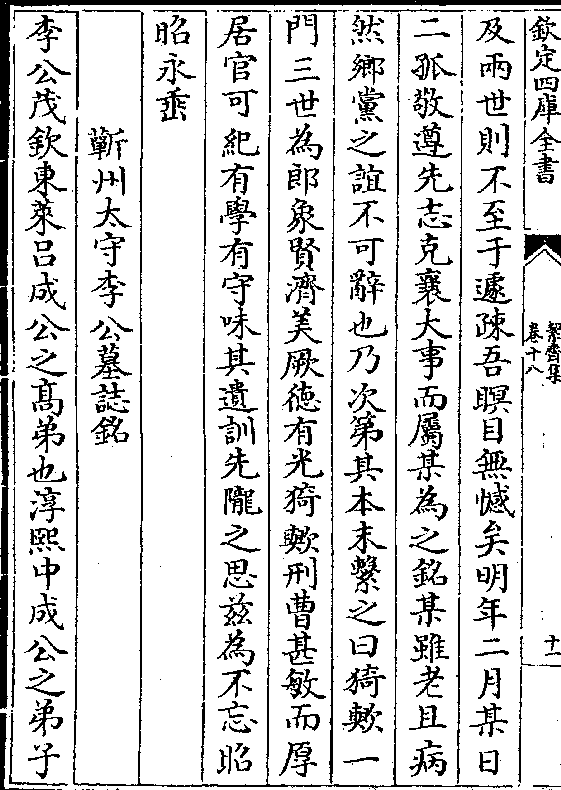 欽定四庫全書
絜齋集
卷十八
十一
及兩世則不至于遽疎吾瞑目無憾矣明年二月某日
二孤敬遵先志克襄大事而屬某為之銘某雖老且病
然鄉黨之誼不可辭也乃次第其本末繫之曰猗歟一
門三世為郎象賢濟美厥徳有光猗歟刑曹甚敏而厚
居官可紀有學有守味其遺訓先隴之思兹為不忘昭
昭永垂
蘄州太守李公墓誌銘
李公茂欽東萊吕成公之髙弟也淳熙中成公之弟子